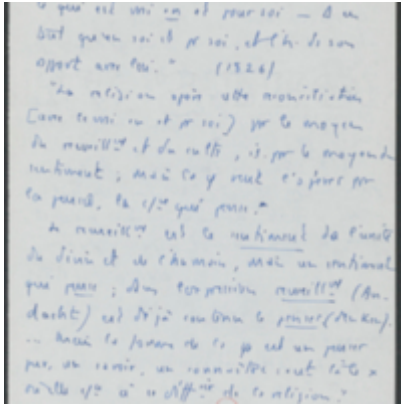 ce qui est vrai en et pour soi — D un
but qu'en soi et pr soi, et l'h. de son
rapport avec lui." (1826)
"La religion opère cette réconciliation
[avec le vrai en et pr soi] par le moyen
du recueillmt et du culte, i.e. par le moyen du
sentiment ; mais la φ veut l'opérer par
la pensée, la c/ce qui pense."
Le recueillmt est le sentiment de l'unité
du divin et de l'humain, mais un sentiment
qui pense ; dans l'expression recueillmt (An-
dacht) est déjà contenu le penser (denken).
... Mais la pensée de la φ est un penser
pur, un savoir, un connaître
de la religion."